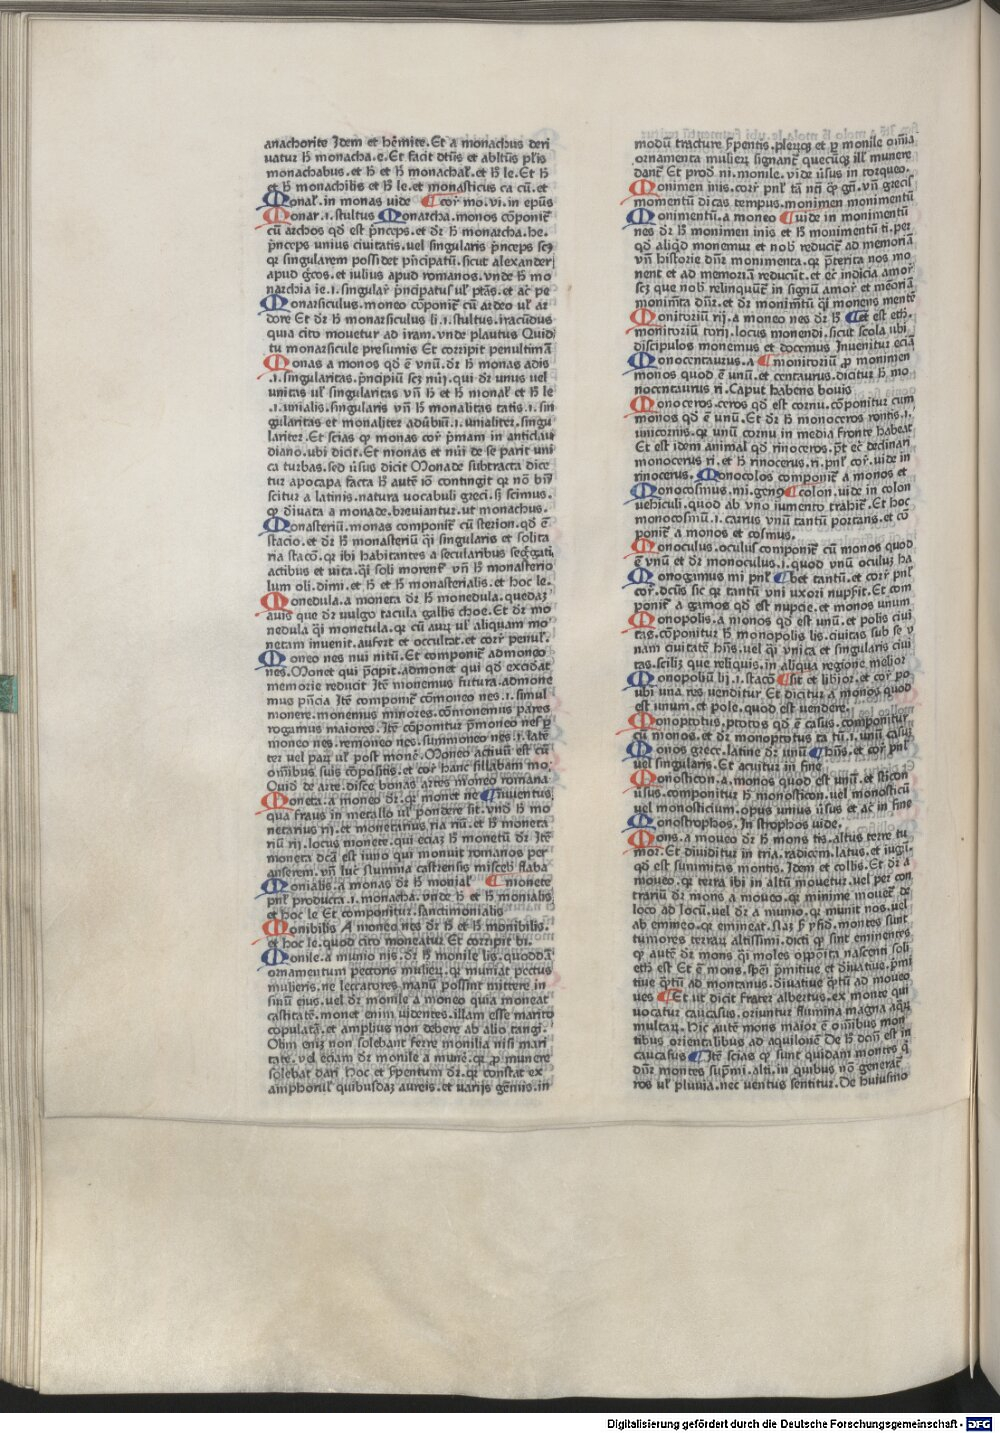 anachorite Jdem et hēmite. Et a monachus deri
uatur h̄ monacha. e. Et facit dtiūs et abltūs pl̄is
monachabus. et h̄ et h̄ monachal̄. et h̄ le. Et h̄
et h̄ monachilis et h̄ le. et monasticus ca cū. et
Monal̄. in monas uide ¶ cor̄ mo. vi. in epūs
Monar .i. stultus Monarcha. monos cōponit̄
cū archos qd̄ est p̄nceps. et dr̄ h̄ monarcha. he.
p̄nceps unius ciuitatis. uel singularis p̄nceps scz
qr singularem possidet p̄ncipatū. sicut alexander
apud ḡcos. et iulius apud romanos. vnde h̄ mo
narchia ie .i. singular̄ p̄ncipatus ul̓ ptās. et ac̄ pe
Monarsiculus. moneo cōponit̄ cū ardeo ul̓ ar
dore Et dr̄ h̄ monarsiculus li .i. stultus. iracūdus
quia cito mouetur ad iram. vnde plautus Quid
tu monarsicule presumis Et corripit penultimā
Monas a monos qd̄ ē vnū. dr̄ h̄ monas adis
.i. singularitas. p̄ncipiū scz nūi. qui dr̄ unus uel
unitas ul̓ singularitas vn̄ h̄ et h̄ monal̄ et h̄ le
.i. unialis. singularis vn̄ h̄ monalitas tatis .i. sin
gularitas et monaliter adūbiū .i. unialiter. singu
lariter. Et scias qp monas cor̄ p̄mam in anticlau
diano. ubi dicit. Et monas et nūi de se parit uni
ca turbas. sed ūsus dicit Monade subtracta dice
tur apocapa facta h̄ autē iō contingit qr nō bn̄
scitur a latinis. natura uocabuli greci. sj scimus.
qp diuata a monade. breviantur. ut monachus.
Monasteriū. monas componit̄ cū sterion. qd̄ ē
stacio. et dr̄ h̄ monasteriū q̄i singularis et solita
ria stacō. qr ibi habitantes a secularibus seg̓gati,
actibus et uita. q̄i soli morent̄ vn̄ h̄ monasterio
lum oli. dimi. et h̄ et h̄ monasterialis. et hoc le.
Monedula. a moneta dr̄ h̄ monedula. quedaz
auis que dr̄ uulgo tacula gallis choe. Et dr̄ mo
nedula q̄i monetula. qr cū aurz ul̓ aliquam mo
netam inuenit. aufert et occultat. et cor̄ penul̄.
Moneo nes nui nitū. Et componit̄ admoneo
nes. Monet qui p̄cipit. admonet qui qd̄ excidat
memorie reducit Jtē monemus futura. admone
mus pn̄cia Jtē componit̄ cōmoneo nes .i. simul
monere. monemus minores. cōmonemus pares
rogamus maiores. Jtē cōponitur p̄moneo nes p̄
moneo nes. remoneo nes. summoneo nes .i. latē
ter vel parz ul̓ post monē. Moneo actiuū est cū
om̄ibus suis cōpositis. et cor̄ hanc sillabam mo,
Ouid de arte. disce bonas artes moneo romana
Moneta. a moneo dr̄. qr monet ne ¶ iuuentus,
qua fraus in metallo ul̓ pondere sit. vnd̄ h̄ mo
netarius rij. et monetarius. ria riū. et h̄ moneta
riū rij. locus monete. qui eciaz h̄ monetū dr̄ Jtē
moneta dc̄a est iuno qui monuit romanos per
anserem. vn̄ luc̄ flumina castrensis misceb̄ flaba
Monialis. a monas dr̄ h̄ monial̄ ¶ monete
pnl̄ producta .i. monacha. vnde h̄ et h̄ monialis
et hoc le Et componitur. sanctimonialis
Monibilis A moneo nes dr̄ h̄ et h̄ monibilis.
et hoc le. quod cito moneatur Et corripit bi.
Monile. a munio nis. dr̄ h̄ monile lis. quoddā
ornamentum pectoris mulierz. qr muniat pectus
mulieris. ne leccatores manū possint mittere in
sinū eius. uel dr̄ monile a moneo quia moneat
castitatē. monet enim uidentes. illam esse marito
copulatā. et amplius non debere ab alio tangi.
Olim eniz non solebant ferre monilia nisi mari
tate. vel eciam dr̄ monile a munē. qr pro munere
solebat dari Hoc et s̄pentum dr̄. qr constat ex
amphorul̓ quibusdaz aureis. et uarijs gēmis. in
modū tracture s̄pentis. plerūqz et pro monile om̄ia
ornamenta mulierz signant̄ quecūqz ill̓ munere
dant̄ Et prod̄ ni. monile. vide ūsus in torqueo.
Monimen inis. corr̄ pnl̄ tā nn̄ qp gn̄. vn̄ grecil̓
momentū dicas tempus. monimen monimentū
Monimentū. a moneo ¶ uide in monimentū
nes dr̄ h̄ monimen inis et h̄ monimentū ti. per
qd̄ aliqd̄ monemur et nob̄ reducit̄ ad memoriā
vn̄ historie dn̄r monimenta. qr p̄terita nos mo
nent et ad memoriā reducūt. et ec̄ indicia amor̄
scz que nob̄ relinquūt̄ in signū amor̄ et mēoriā
monimēta dn̄r. et dr̄ monimētū q̄i monens mentē
Monitoriū rij. a moneo nes dr̄ h̄ ¶ et est eth̄.
monitoriū torij. locus monendi. sicut scola ubi
discipulos monemus et docemus Jnuenitur eciā
Monocentaurus. a ¶ monitoriū pro monimen
monos quod ē unū. et centaurus. dicitur h̄ mo
nocentaurus ri. Caput habens bouis
Monoceros. ceros qd̄ est cornu. cōponitur cum
monos qd̄ ē unū. Et dr̄ h̄ monoceros rontis .i.
unicornis. qr unū cornu in media fronte habeat
Et est idem animal qd̄ rinoceros. p̄t ec̄ declinari
monocerus ri. et h̄ rinocerus. ri. pnl̓ cor̄. uide in
rinocerus. Monocolos componit̄ a monos et
Monocosmus. mi. gen9 ¶ colon. uide in colon
uehiculi. quod ab vno iumento trahit̄. Et hoc
monocosmū .i. carrus vnū tantū portans. et cō
ponit̄ a monos et cosmus.
Monoculus. oculus componit̄ cū monos quod
ē vnū et dr̄ monoculus .i. quod vnū oculuz ha
Monogamus mi pnl̄ ¶ bet tantū. et corr̄ pnl̄
cor̄. dc̄us sic qr tantū vni uxori nupsit. Et com
ponit̄ a gamos qd̄ est nupcie. et monos unum
Monopolis. a monos qd̄ est unū. et polis ciui
tas. cōponitur h̄ monopolis lis. ciuitas sub se v
nam ciuitatē hn̄s. uel q̄i vnica et singularis ciui
tas. sciliz que reliquis. in aliqua regione melior
Monopoliū lij .i. stacō ¶ sit et libior. et cor̄ po
ubi una res uenditur Et dicitur a monos quod
est unum. et pole. quod est uendere.
Monoprotus. protos qd̄ ē casus. componitur
cū monos. et dr̄ monoprotus ta tū .i. unū casuz
Monos grece. latine dr̄ unū ¶ hn̄s. et cor̄ pnl̄
uel singularis. Et acuitur in fine
Monosticon. a. monos quod est unū. et sticon
ūsus. componitur h̄ monosticon. uel monosticū
uel monosticium. opus unius ūsus et ac̄ in fine
Monostrophos. Jn strophos uide.
Mons. a moueo dr̄ h̄ mons tis. altus terre tu
mor. Et diuiditur in tria. radicem. latus. et iugū.
qd̄ est summitas montis. Jdem et collis. Et dr̄ a
moueo. qr terra ibi in altū mouetur. uel per con
trariū dr̄ mons a moueo. qr minime mouet̄ de
loco ad locū. uel dr̄ a munio. qr munit nos. uel
ab emineo. qr emineat. Naz h̄ ysid. montes sunt
tumores terrarz altissimi. dicti qp sint eminentes
qp autē dr̄ mons q̄i moles opposita nascenti soli
eth̄ est Et ē mons. spēi p̄mitiue et diuatiue. p̄mi
tiue q̄tū ad montanus. diuatiue q̄tū ad moueo
ues ¶ Et ut dicit frater albertus. ex monte qui
vocatur caucasus. oriuntur flumina magna aqrz
multarz. Hic autē mons maior ē om̄ibus mon
tibus orientalibus ad aquilonē De h̄ dcm̄ est in
caucasus ¶ Jtē scias qp sunt quidam montes q̄
dn̄r montes sup̄mi. alti. in quibus nō generat̄
ros ul̓ pluuia. nec uentus sentitur. De huiusmo
Digitalisierung gefördert durch die Deutsche Forschungsgemeinschaft - DFG